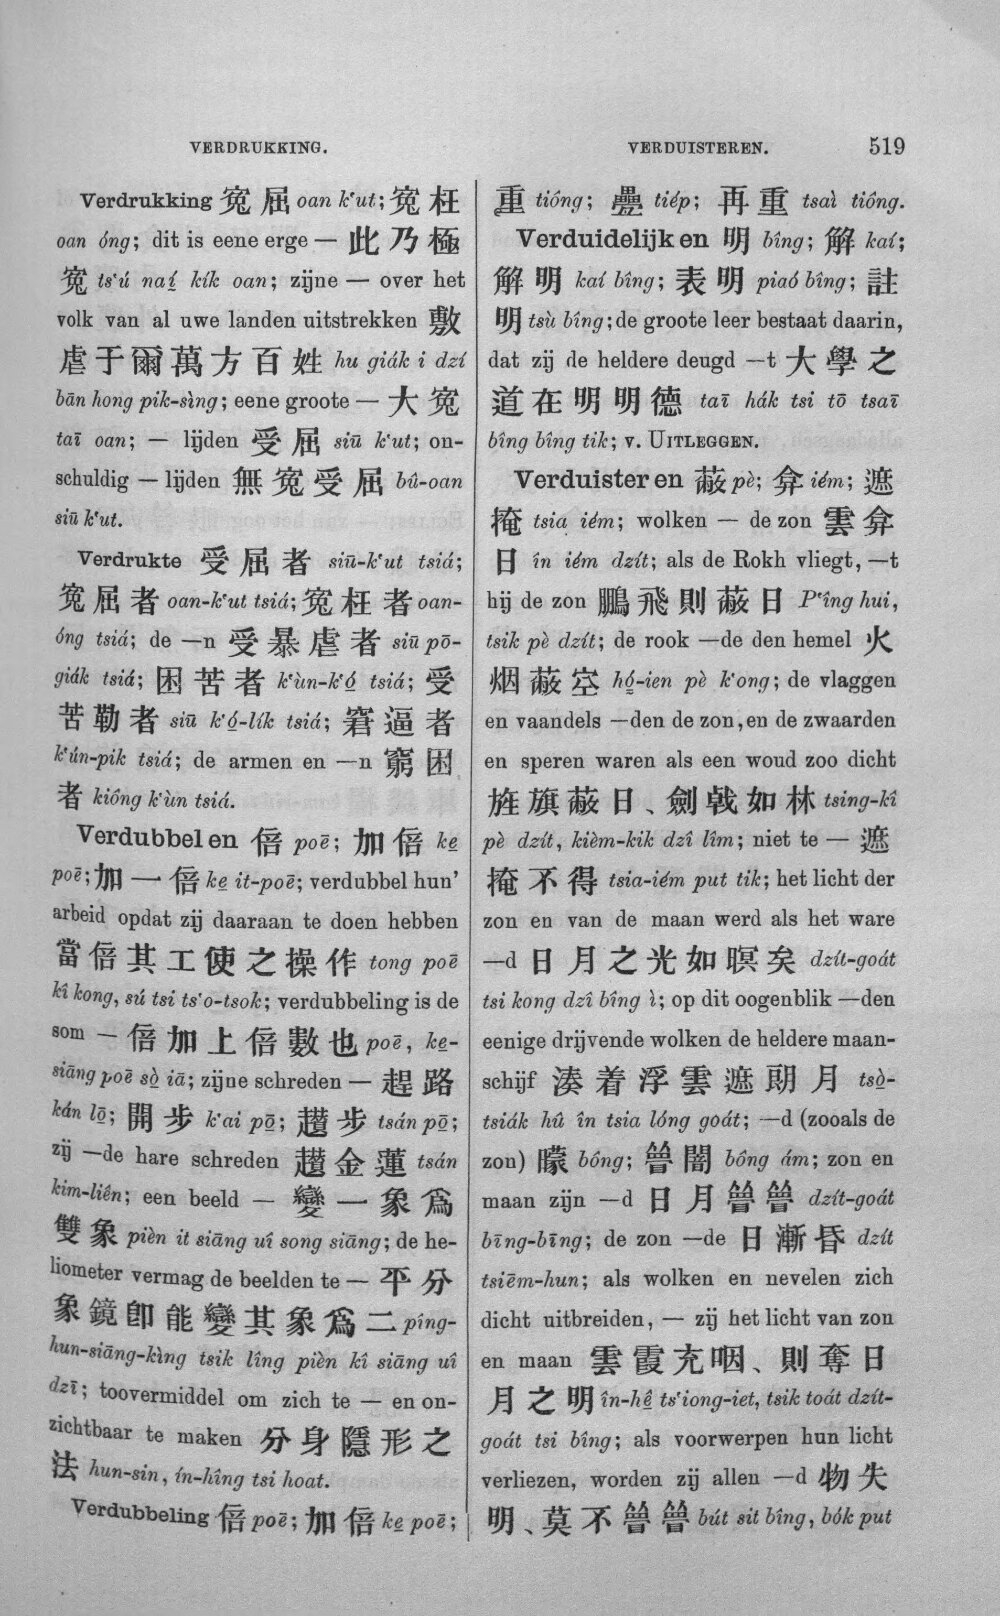 VERDRUKKING.
VERDUISTEREN.
519
Verdrukking 寃屈 oan k‘ut; 寃枉
oan óng; dit is eene erge — 此乃極
寃 ts‘ú naí kík oan; zijne — over het
volk van al uwe landen uitstrekken 敷
虐于爾萬方百姓 hu giák i dzí
bān hong pik-sìng; eene groote — 大寃
taī oan; — lijden 受屈 siū k‘ut; on-
schuldig — lijden 無寃受屈 bû-oan
siū k‘ut.
Verdrukte 受屈者 siū-k‘ut tsiá;
寃屈者 oan-k‘ut tsiá; 寃枉者 oan-
óng tsiá; de —n 受暴虐者 siū pō-
giák tsiá; 困苦者 k‘ùn-k‘ó̤ tsiá; 受
苦勒者 siū k‘ó̤-lík tsiá; 窘逼者
k‘ún-pik tsiá; de armen en —n 窮困
者 kiông k‘ùn tsiá.
Verdubbelen 倍 poē; 加倍 ke̤
poē; 加一倍 ke̤ it-poē; verdubbel hun’
arbeid opdat zij daaraan te doen hebben
當倍其工使之操作 tong poē
kî kong, sú tsi ts‘o-tsok; verdubbeling is de
som — 倍加上倍數也 poē, ke̤-
siāng poē sò̤ iā; zijne schreden — 趕路
kán lō̤; 開步 k‘ai pō̤; 趲步 tsán pō̤;
zij —de hare schreden 趲金蓮 tsán
kim-liên; een beeld — 變一象爲
雙象 pièn it siāng uî song siāng; de he-
liometer vermag de beelden te — 平分
象鏡卽能變其象爲二 pîng-
hun-siāng-kìng tsik lîng pièn kî siāng uî
dzī; toovermiddel om zich te — en on-
zichtbaar te maken 分身隱形之
法 hun-sin, ín-hîng tsi hoat.
Verdubbeling 倍 poē; 加倍 ke̤ poē;
重 tiông; 疊 tiép; 再重 tsaì tiông.
Verduidelijken 明 bîng; 解 kaí;
解明 kaí bîng; 表明 piaó bîng; 註
明 tsù bîng; de groote leer bestaat daarin,
dat zij de heldere deugd —t 大學之
道在明明德 taī hák tsi tō tsaī
bîng bîng tik; v. UITLEGGEN.
Verduisteren 蔽 pè; 弇 iém; 遮
掩 tsia iém; wolken — de zon 雲弇
日 în iém dzít; als de Rokh vliegt, —t
hij de zon 鵬飛則蔽日 P‘îng hui,
tsik pè dzít; de rook —de den hemel 火
烟蔽空 hó̤-ien pè k‘ong; de vlaggen
en vaandels —den de zon, en de zwaarden
en speren waren als een woud zoo dicht
旌旗蔽日、劍戟如林 tsing-kî
pè dzít, kièm-kik dzî lîm; niet te — 遮
掩不得 tsia-iém put tik; het licht der
zon en van de maan werd als het ware
—d 日月之光如暝矣 dzít-goát
tsi kong dzî bîng ì; op dit oogenblik —den
eenige drijvende wolken de heldere maan-
schijf 湊着浮雲遮朗月 tsò̤-
tsiák hû în tsia lóng goát; —d (zooals de
zon) 矇 bông; 瞢闇 bông ám; zon en
maan zijn —d 日月瞢瞢 dzít-goát
bīng-bīng; de zon —de 日漸昏 dzít
tsiēm-hun; als wolken en nevelen zich
dicht uitbreiden, — zij het licht van zon
en maan 雲霞充咽、則奪日
月之明 în-hê̤ ts‘iong-iet, tsik toát dzít-
goát tsi bîng; als voorwerpen hun licht
verliezen, worden zij allen —d 物失
明、莫不瞢瞢 bút sit bîng, bók put